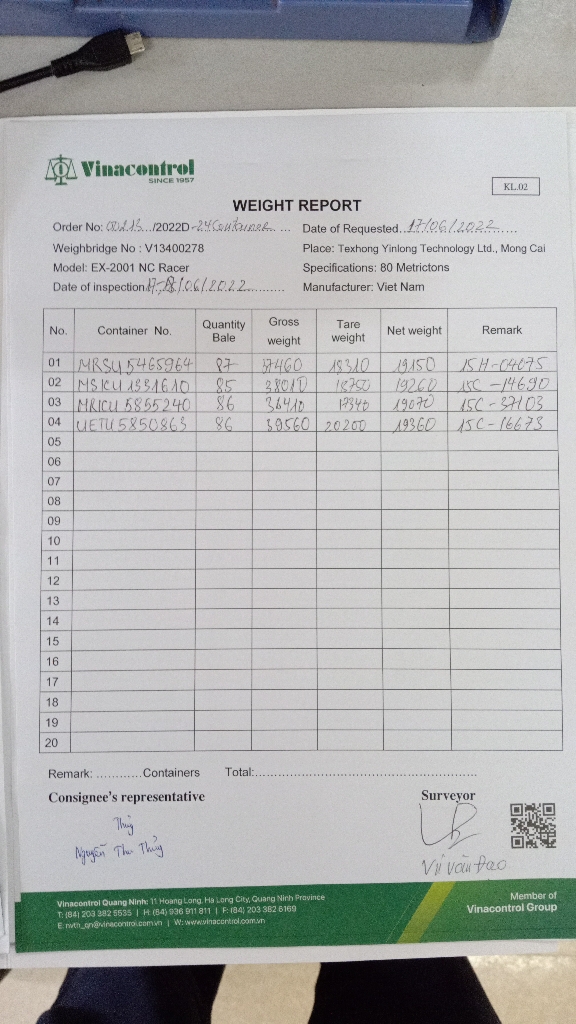 Vinacontrol
SINCE 1957
KL.02
WEIGHT REPORT
Order No: 00213.../2022D-24 Container...
Date of Requested..17/06/2022......
Weighbridge No : V13400278
Place: Texhong Yinlong Technology Ltd., Mong Cai
Model: EX-2001 NC Racer
Specifications: 80 Metrictons
Date of inspection:17-18/06/2022..........
Manufacturer: Viet Nam
No. Container No. Quantity Bale Gross weight Tare weight Net weight Remark
01 MRSU 5465964 87 37460 18310 19150 15H-04075
02 MSKU 1331610 85 38010 18750 19260 15C-14690
03 MRKU 5855240 86 36410 17340 19070 15C-37103
04 UETU 5850863 86 39560 20200 19360 15C-16673
05
06
07
08
09
10
11
12
13
14
15
16
17
18
19
20
Remark: ............Containers Total:......................................................
Consignee's representative
Surveyor
Thủy
Nguyễn Thu Thủy
Vũ Văn Đạo
Vinacontrol Quang Ninh: 11 Hoang Long, Ha Long City, Quang Ninh Province
T: (84) 203 382 5535 | H: (84) 936 911 811 | F: (84) 203 382 6169
E: nvth_qn@vinacontrol.com.vn | W: www.vinacontrol.com.vn
Member of
Vinacontrol Group